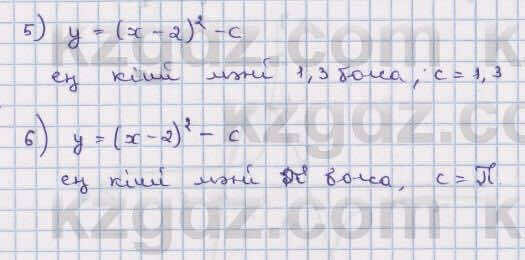 5) y = (x - 2)² - c
ең кіші мәні 1,3 болса, c = 1,3
6) y = (x - 2)² - c
ең кіші мәні болса, c = П.
kzgdz.com